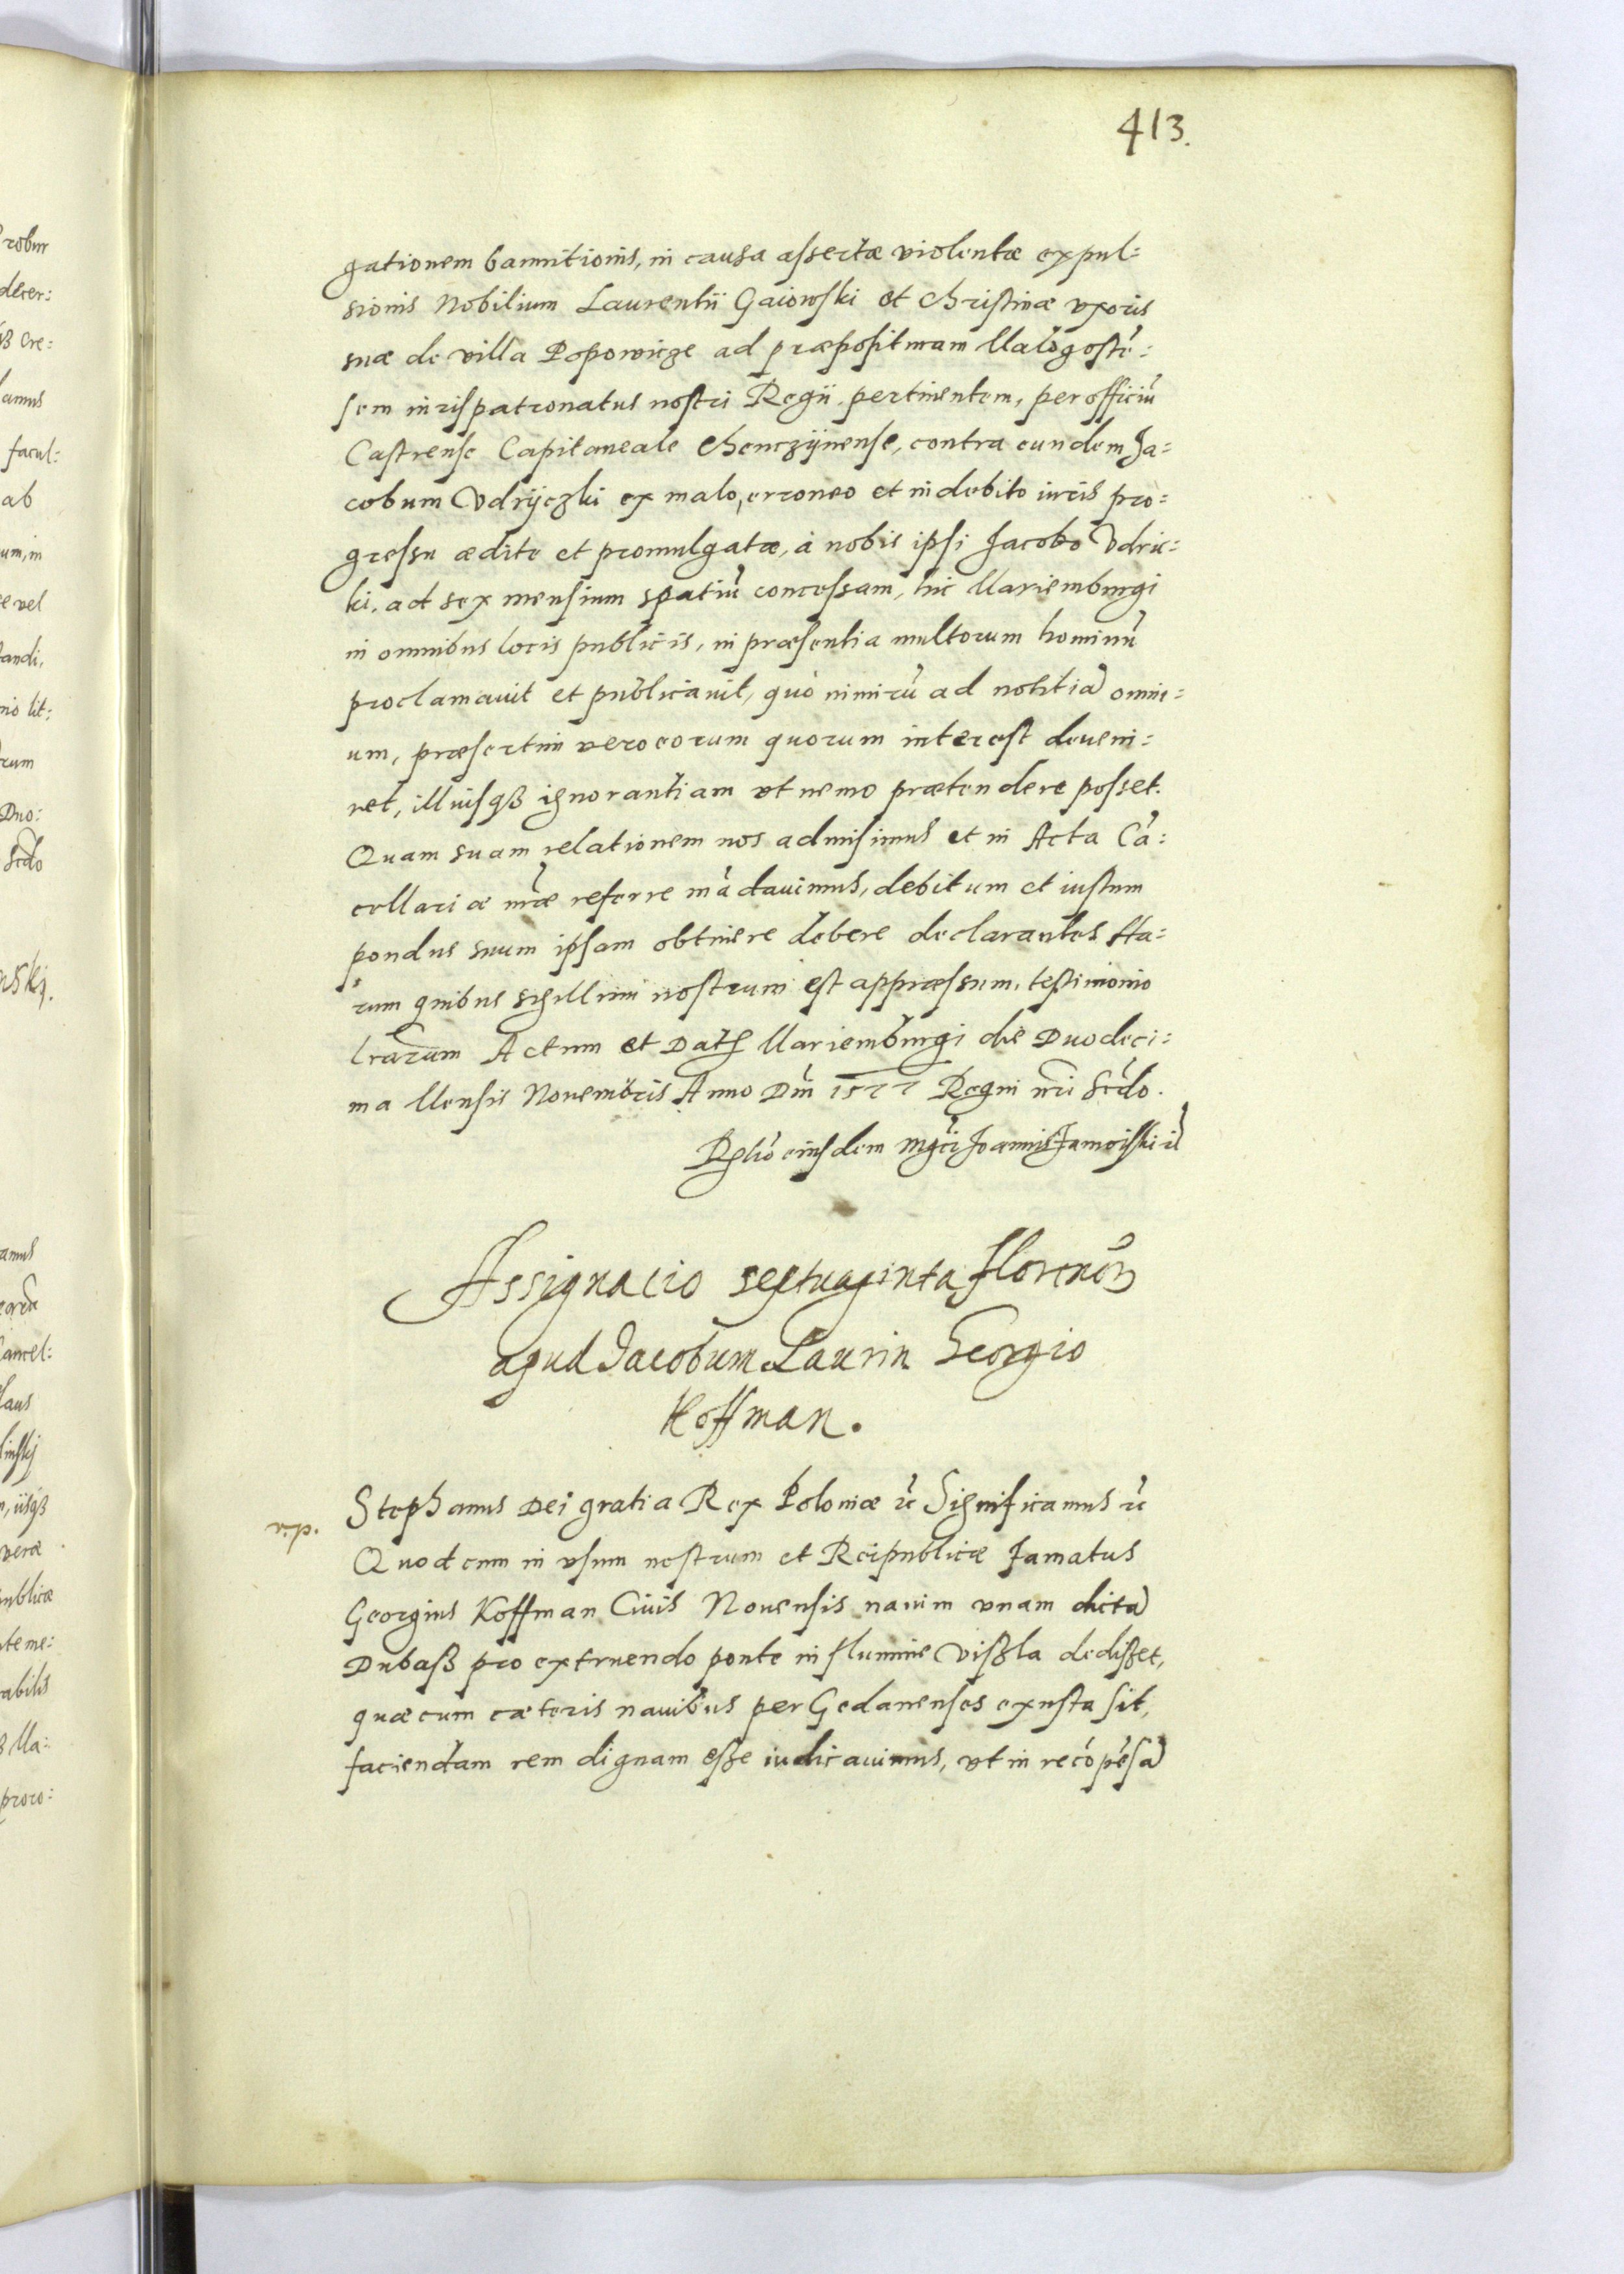 413.
gationem bannitionis, in causa assertæ violentæ expul=
sionis Nobilium Laurentii Gaiowski et Christinæ vxoris
suæ de villa Popowicze ad præposituram Malogostē=
sem iurispatronatus nostri Regii pertinentem, per officiū
Castrense Capitaneale Chenczÿnense, contra eundem Ja=
cobum Vdrÿczki ex malo, erroneo et indebito iuris pro=
gressu æditæ et promulgatæ, à nobis ipsi Jacobo Vdric=
ki, ad sex mensium spatiū concessam, hic Mariemburgi
in omnibus locis publicis, in præsentia multorum hominū
proclamavit et publicavit, quò nimirū ad notitiā omni=
um, præsertim vero eorum quorum interest deveni=
ret, illiusqȝ ignorantiam vt nemo prætendere posset.
Quam suam relationem nos admisimus et in Acta Cā=
cellariæ nr̄æ referre mādavimus, debitum et iustum
pondus suum ipsam obtinere debere declarantes Ha=
rum quibus sigillum nostrum est appressum, testimonio
lrārum Actum et Datȝ Mariemburgi die Duodeci=
ma Mensis Novembris Anno Dn̄i 1577 Regni nr̄i Scd̄o.
Rl̄tio eiusdem Mgc̄i Joannis Zamoiski ꝛc̄
Assignacio septuaginta florenor̄
apud Jacobum Laurin Georgio
Koffman.
r.p.
Stephanus Dei gratia Rex Poloniæ ꝛc̄ Significamus ꝛc̄
Quod cum in vsum nostrum et Reipublicæ famatus
Georgius Koffman Civis Novensis navim vnam dictā
Dubaß pro extruendo ponte in flumine Vißla dedißet,
quæ cum cæteris navibus per Gedanenses exusta sit,
faciendam rem dignam eße iudicavimus, vt in recōpēsā